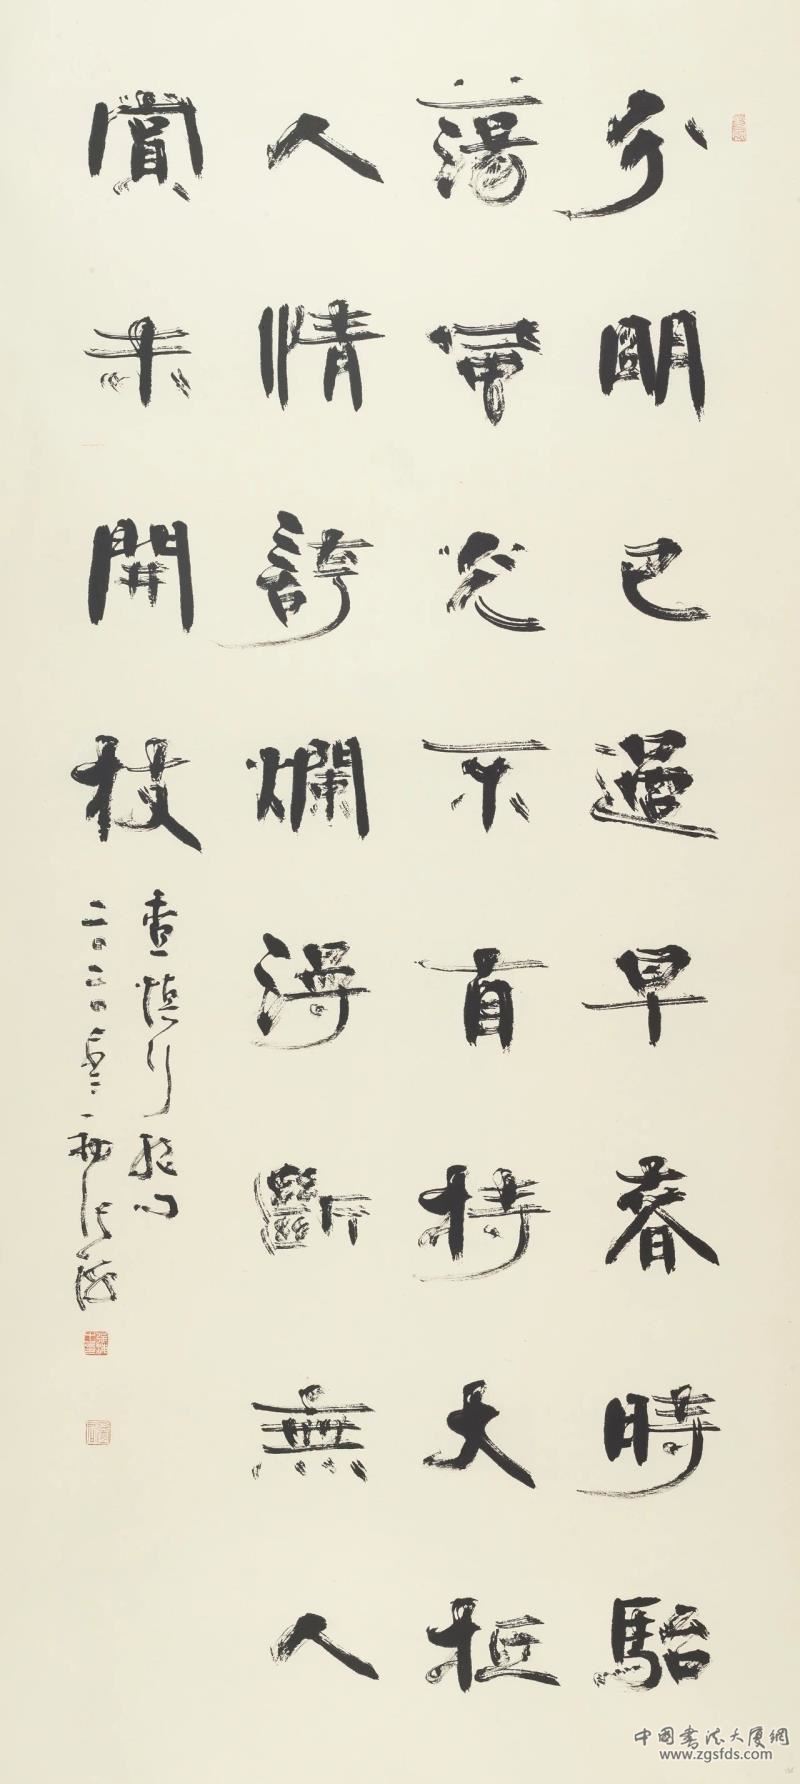 分明已過早春時駘
蕩風光不自持大抵
人情誇爛漫斷無人
賞未開枝
查慎行
二〇二〇
中國書法大厦網
www.zgsfds.com